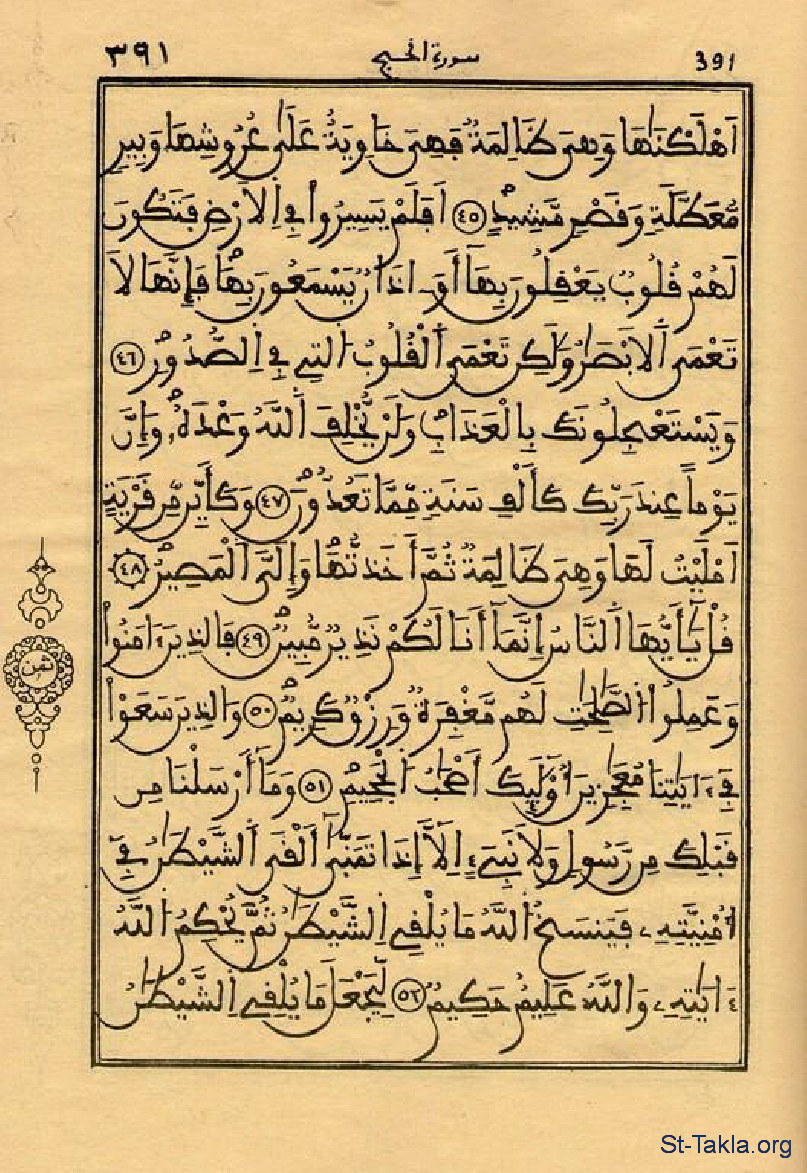 ٣٩١ سورة الحج 391
اَهْلَكْنَٰهَا وَهِىَ ظَالِمَةٌ فَهِىَ خَاوِيَةٌ عَلَىٰ عُرُوشِهَا وَبِيرٍ
مُّعَطَّلَةٍ وَقَصْرٍ مَّشِيدٍ ٤٥ اَفَلَمْ يَسِيرُواْ فِے اِلَارْضِ فَتَكُونَ
لَهُمْ قُلُوبٌ يَعْقِلُونَ بِهَآ أَوَ اذَانٌ يَسْمَعُونَ بِهَا فَإِنَّهَا لَا
تَعْمَى اَلَابْصَٰرُ وَلَٰكِن تَعْمَى اَلْقُلُوبُ اُلتِے فِے اِلصُّدُورِ ٤٦
وَيَسْتَعْجِلُونَكَ بِالْعَذَابِ وَلَنْ يُّخْلِفَ اَللَّهُ وَعْدَهُۥ وَإِنَّ
يَوْماً عِندَ رَبِّكَ كَأَلْفِ سَنَةٍ مِّمَّا تَعُدُّونَ ٤٧ وَكَأَيِّن مِّن قَرْيَةٍ
اَمْلَيْتُ لَهَا وَهِىَ ظَالِمَةٌ ثُمَّ أَخَذتُّهَا وَإِلَىَّ اَلْمَصِيرُ ٤٨
قُلْ يَٰٓأَيُّهَا اَلنَّاسُ إِنَّمَآ أَنَا لَكُمْ نَذِيرٌ مُّبِينٌ ٤٩ فَالذِينَ ءَامَنُواْ
وَعَمِلُواْ اُلصَّٰلِحَٰتِ لَهُم مَّغْفِرَةٌ وَرِزْقٌ كَرِيمٌ ٥٠ وَالذِينَ سَعَوْاْ
فِےٓ ءَايَٰتِنَا مُعَٰجِزِينَ أُوْلَٰٓئِكَ أَصْحَٰبُ اُلْجَحِيمِ ٥١ وَمَآ أَرْسَلْنَا مِن
قَبْلِكَ مِن رَّسُولٍ وَلَا نَبِےٓءٍ اِلَّآ إِذَا تَمَنَّىٰٓ أَلْقَى اَلشَّيْطَٰنُ فِےٓ
أُمْنِيَّتِهِۦ فَيَنسَخُ اُللَّهُ مَا يُلْقِے اِلشَّيْطَٰنُ ثُمَّ يُحْكِمُ اُللَّهُ
ءَايَٰتِهِۦ وَاللَّهُ عَلِيمٌ حَكِيمٌ ٥٢ لِّيَجْعَلَ مَا يُلْقِے اِلشَّيْطَٰنُ
ثمن
St-Takla.org